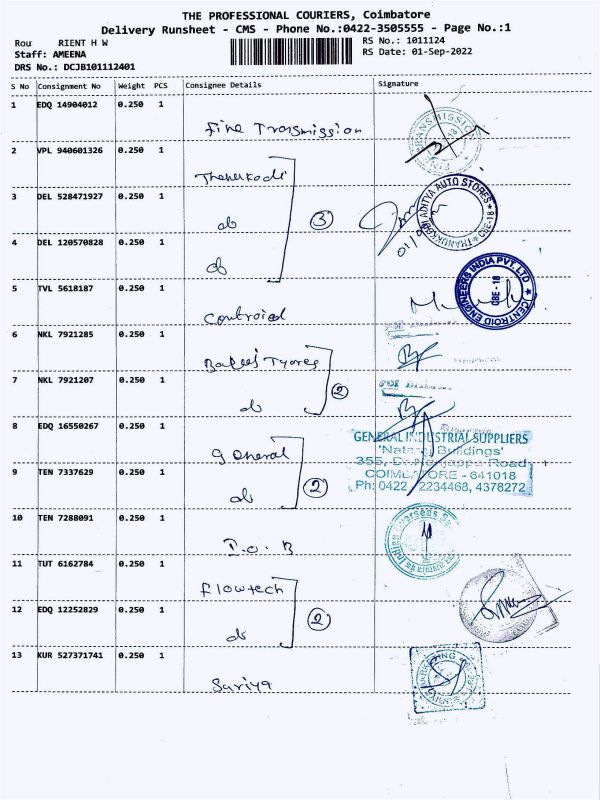 THE PROFESSIONAL COURIERS, Coimbatore
Delivery Runsheet - CMS - Phone No.:0422-3505555 - Page No.:1
Rou RIENT H W RS No.: 1011124
Staff: AMEENA RS Date: 01-Sep-2022
DRS No.: DCJB101112401
S No Consignment No Weight PCS Consignee Details Signature
1 EDQ 14904012 0.250 1
Fine Transmission
2 VPL 940601326 0.250 1
Thanukodi
3 DEL 528471927 0.250 1
do 3
THANUKKODI ADITYA AUTO STORES CBE-18
4 DEL 120570828 0.250 1
do
5 TVL 5618187 0.250 1
Centroid
CENTROID ENGINEERS INDIA PVT. LTD CBE - 18
6 NKL 7921285 0.250 1
Tyores
7 NKL 7921207 0.250 1
do 2
8 EDQ 16550267 0.250 1
General
GENERAL INDUSTRIAL SUPPLIERS
'Nataraj Buildings'
355, Dr.Nanjappa Road
COIMBATORE - 641018
Ph: 0422 2234468, 4378272
9 TEN 7337629 0.250 1
do 2
10 TEN 7288091 0.250 1
I.O.B
11 TUT 6162784 0.250 1
Flowtech
12 EDQ 12252829 0.250 1
do 2
13 KUR 527371741 0.250 1
Suriya